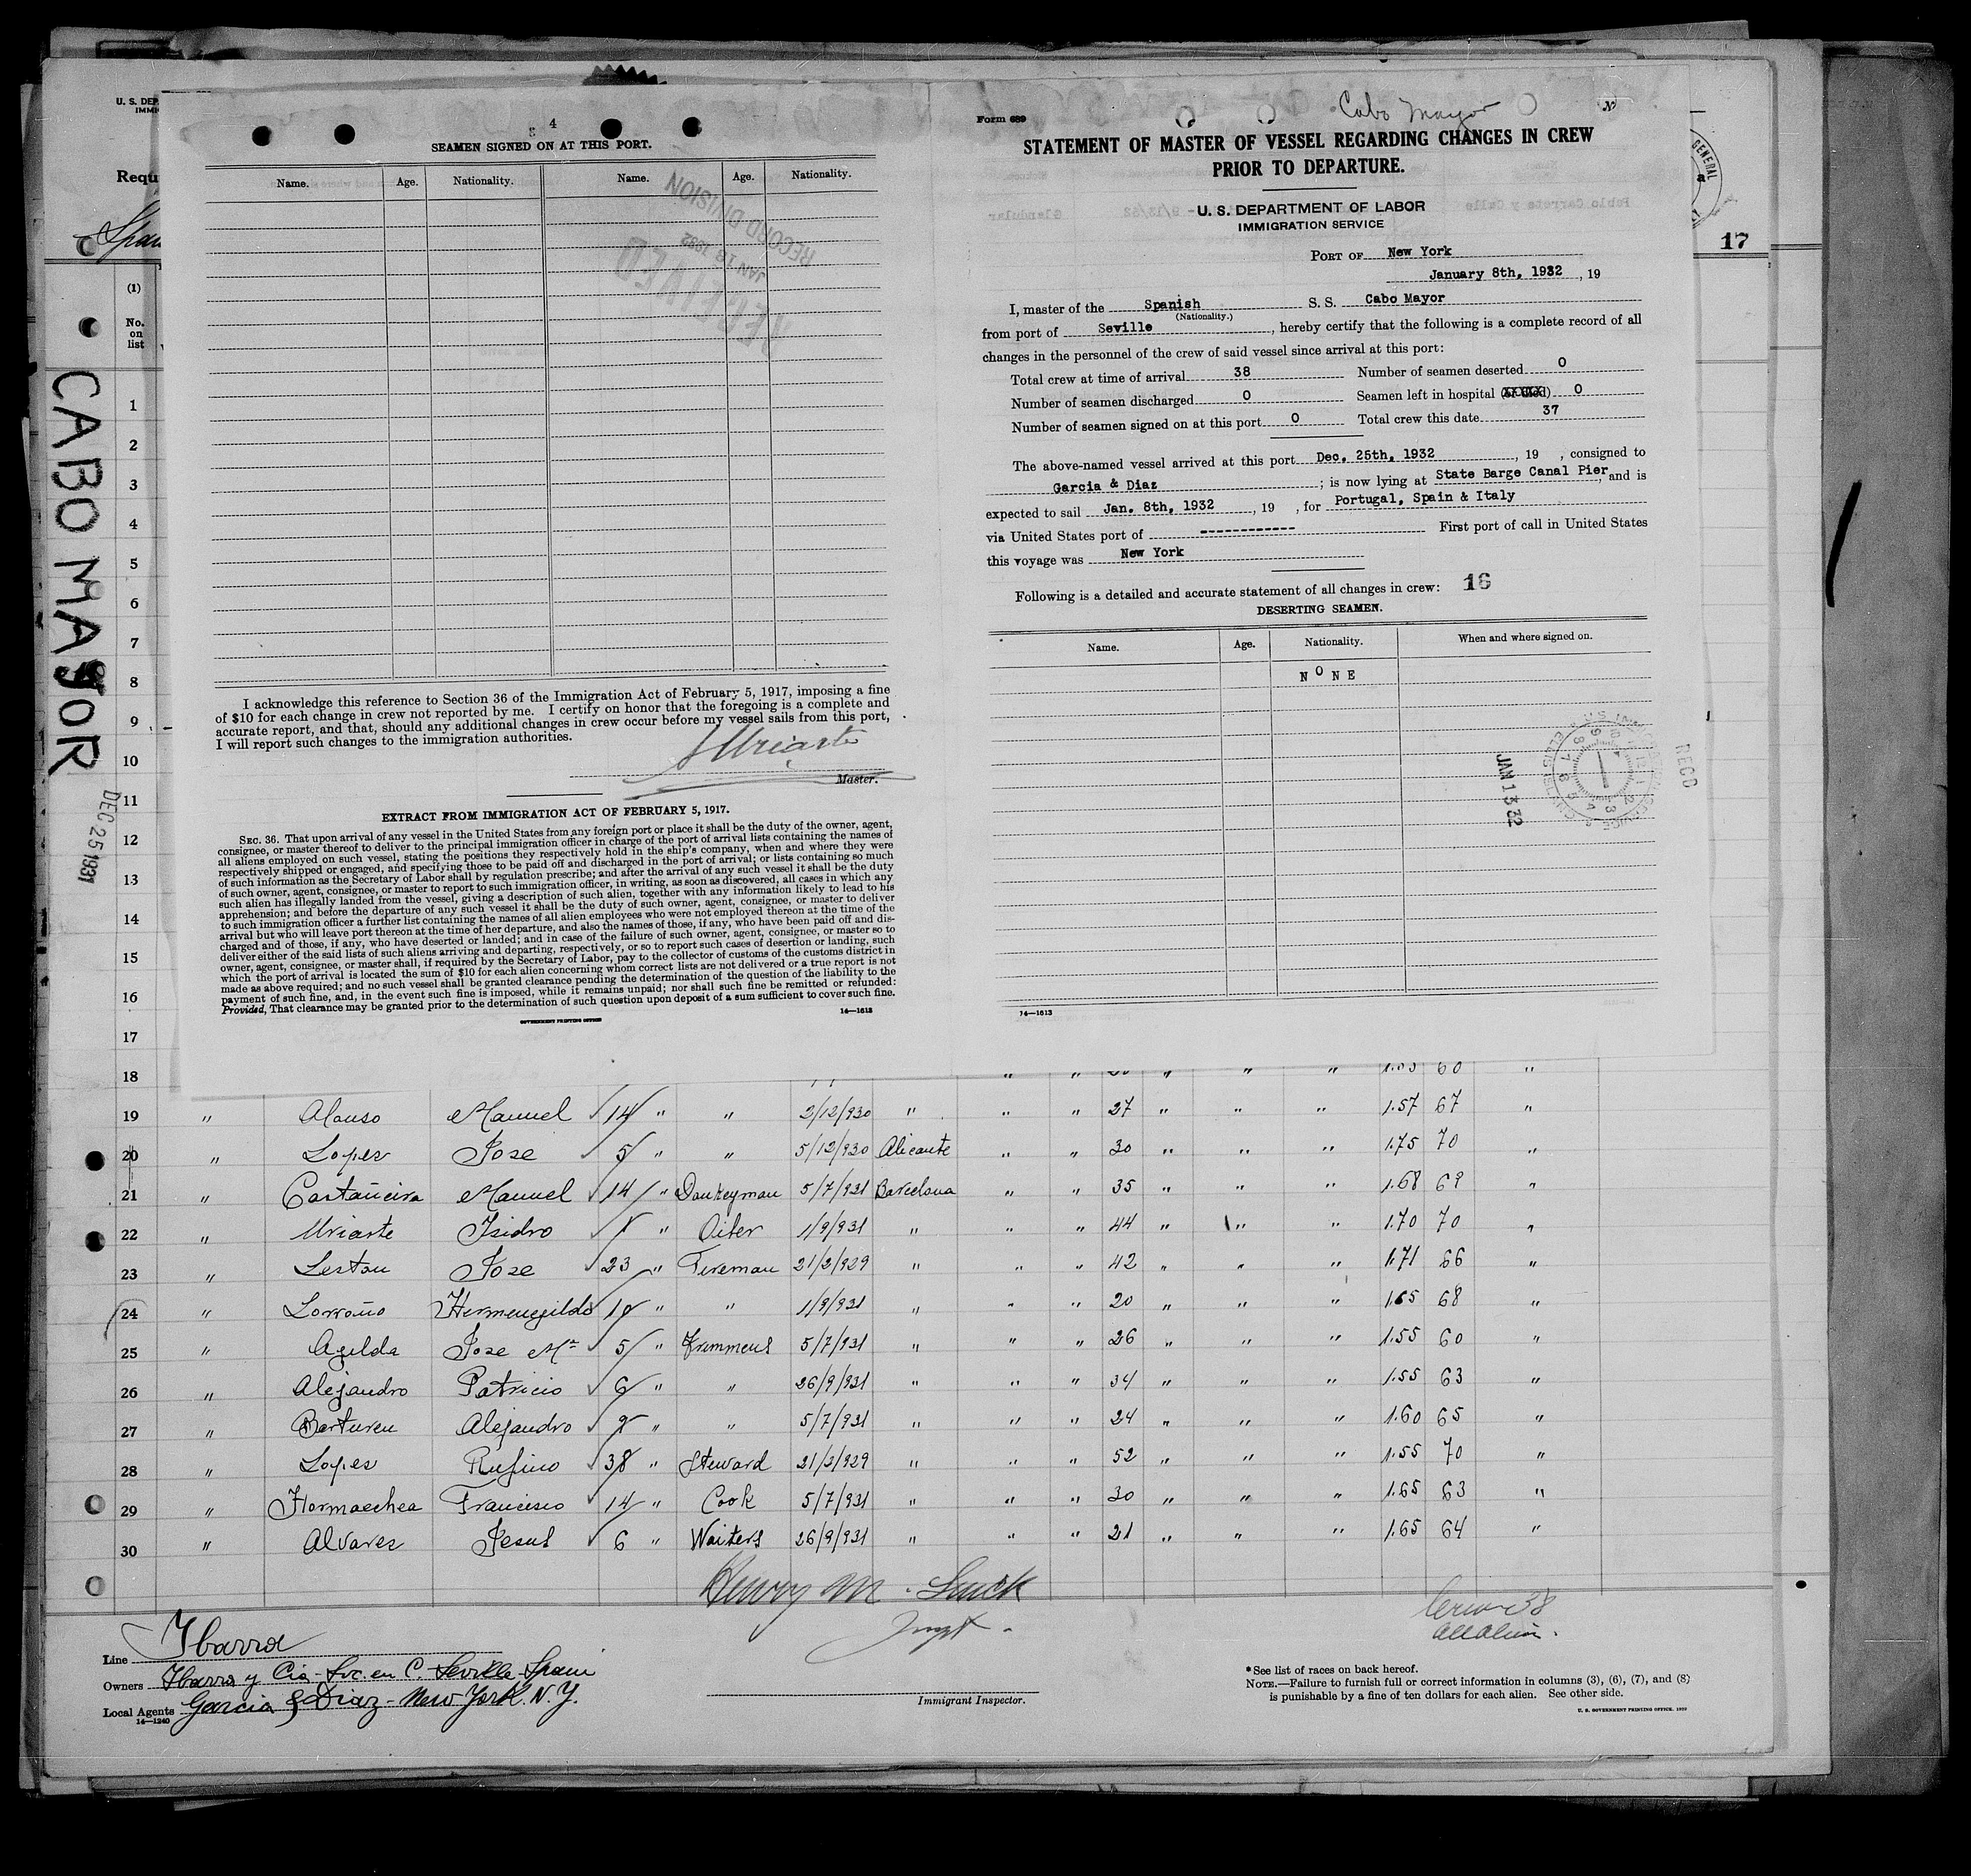 U. S. DEP
IMMI
Requ
Span
(1)
No.
on
list
CABO MAYOR
DEC 25 1931
4
SEAMEN SIGNED ON AT THIS PORT.
Name. Age. Nationality. Name. Age. Nationality.
RECEIVED
JAN 16 1932
RECORD DIVISION
I acknowledge this reference to Section 36 of the Immigration Act of February 5, 1917, imposing a fine
of $10 for each change in crew not reported by me. I certify on honor that the foregoing is a complete and
accurate report, and that, should any additional changes in crew occur before my vessel sails from this port,
I will report such changes to the immigration authorities.
J Uriarte
Master.
EXTRACT FROM IMMIGRATION ACT OF FEBRUARY 5, 1917.
SEC. 36. That upon arrival of any vessel in the United States from any foreign port or place it shall be the duty of the owner, agent,
consignee, or master thereof to deliver to the principal immigration officer in charge of the port of arrival lists containing the names of
all aliens employed on such vessel, stating the positions they respectively hold in the ship's company, when and where they were
respectively shipped or engaged, and specifying those to be paid off and discharged in the port of arrival; or lists containing so much
of such information as the Secretary of Labor shall by regulation prescribe; and after the arrival of any such vessel it shall be the duty
of such owner, agent, consignee, or master to report to such immigration officer, in writing, as soon as discovered, all cases in which any
such alien has illegally landed from the vessel, giving a description of such alien, together with any information likely to lead to his
apprehension; and before the departure of any such vessel it shall be the duty of such owner, agent, consignee, or master to deliver
to such immigration officer a further list containing the names of all alien employees who were not employed thereon at the time of the
arrival but who will leave port thereon at the time of her departure, and also the names of those, if any, who have been paid off and dis-
charged and of those, if any, who have deserted or landed; and in case of the failure of such owner, agent, consignee, or master so to
deliver either of the said lists of such aliens arriving and departing, respectively, or so to report such cases of desertion or landing, such
owner, agent, consignee, or master shall, if required by the Secretary of Labor, pay to the collector of customs of the customs district in
which the port of arrival is located the sum of $10 for each alien concerning whom correct lists are not delivered or a true report is not
made as above required; and no such vessel shall be granted clearance pending the determination of the question of the liability to the
payment of such fine, and, in the event such fine is imposed, while it remains unpaid; nor shall such fine be remitted or refunded:
Provided, That clearance may be granted prior to the determination of such question upon deposit of a sum sufficient to cover such fine.
GOVERNMENT PRINTING OFFICE 14—1613
Form 689
Cabo Mayor
STATEMENT OF MASTER OF VESSEL REGARDING CHANGES IN CREW
PRIOR TO DEPARTURE.
U. S. DEPARTMENT OF LABOR
IMMIGRATION SERVICE
PORT OF New York
January 8th, 1932, 19
I, master of the Spanish S. S. Cabo Mayor
(Nationality.)
from port of Seville, hereby certify that the following is a complete record of all
changes in the personnel of the crew of said vessel since arrival at this port:
Total crew at time of arrival 38 Number of seamen deserted 0
Number of seamen discharged 0 Seamen left in hospital (or died) 0
Number of seamen signed on at this port 0 Total crew this date 37
The above-named vessel arrived at this port Dec. 25th, 1932, 19 , consigned to
Garcia & Diaz; is now lying at State Barge Canal Pier, and is
expected to sail Jan. 8th, 1932, 19 , for Portugal, Spain & Italy
via United States port of ------------ First port of call in United States
this voyage was New York
Following is a detailed and accurate statement of all changes in crew: 16
DESERTING SEAMEN.
Name. Age. Nationality. When and where signed on.
NONE
JAN 13 32
RECD
14—1613
GENERAL
17
1
2
3
4
5
6
7
8
9
10
11
12
13
14
15
16
17
18 " " " " " 60 "
19 " Alonso Manuel 14 " " 2/12/930 " " " 27 " " " 1.57 67 "
20 " Lopez Jose 5 " " 5/12/930 Alicante " " 30 " " " 1.75 70 "
21 " Castañeira Manuel 14 " Donkeyman 5/7/931 Barcelona " " 35 " " " 1.68 69 "
22 " Uriarte Isidro " Oiler 1/9/931 " " " 44 " " " 1.70 70 "
23 " Leston Jose 23 " Fireman 21/2/929 " " " 42 " " " 1.71 66 "
24 " Lorroño Hermenegildo 10 " " 1/9/931 " " " 20 " " " 1.65 68 "
25 " Agilda Jose Mª 5 " Trimmers 5/7/931 " " " 26 " " " 1.55 60 "
26 " Alejandro Patricio 6 " " 26/9/931 " " " 34 " " " 1.55 63 "
27 " Berturen Alejandro " " 5/7/931 " " " 24 " " " 1.60 65 "
28 " Lopez Rufino 38 " Steward 21/2/929 " " " 52 " " " 1.55 70 "
29 " Hormaechea Francisco 14 " Cook 5/7/931 " " " 30 " " " 1.65 63 "
30 " Alvarez Jesus 6 " Waiters 26/9/931 " " " 21 " " " 1.65 64 "
Henry M.
Inspt.
Crew 38
all alien.
Line Ibarra
Owners Ibarra y Cia. Soc. en C. Seville Spain
Local Agents Garcia & Diaz - New York. N. Y.
14—1240
Immigrant Inspector.
* See list of races on back hereof.
NOTE.—Failure to furnish full or correct information in columns (3), (6), (7), and (8)
is punishable by a fine of ten dollars for each alien. See other side.
U. S. GOVERNMENT PRINTING OFFICE. 1929